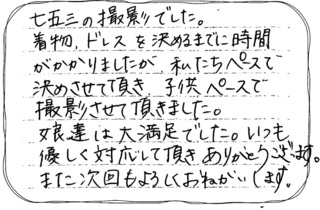 七五三の撮影でした。
着物、ドレスを決めるまでに時間
がかかりましたが、私たちペースで
決めさせて頂き、子供ペースで
撮影させて頂きました。
娘達は大満足でした。いつも
優しく対応して頂きありがとうございます。
また次回もよろしくおねがいします。